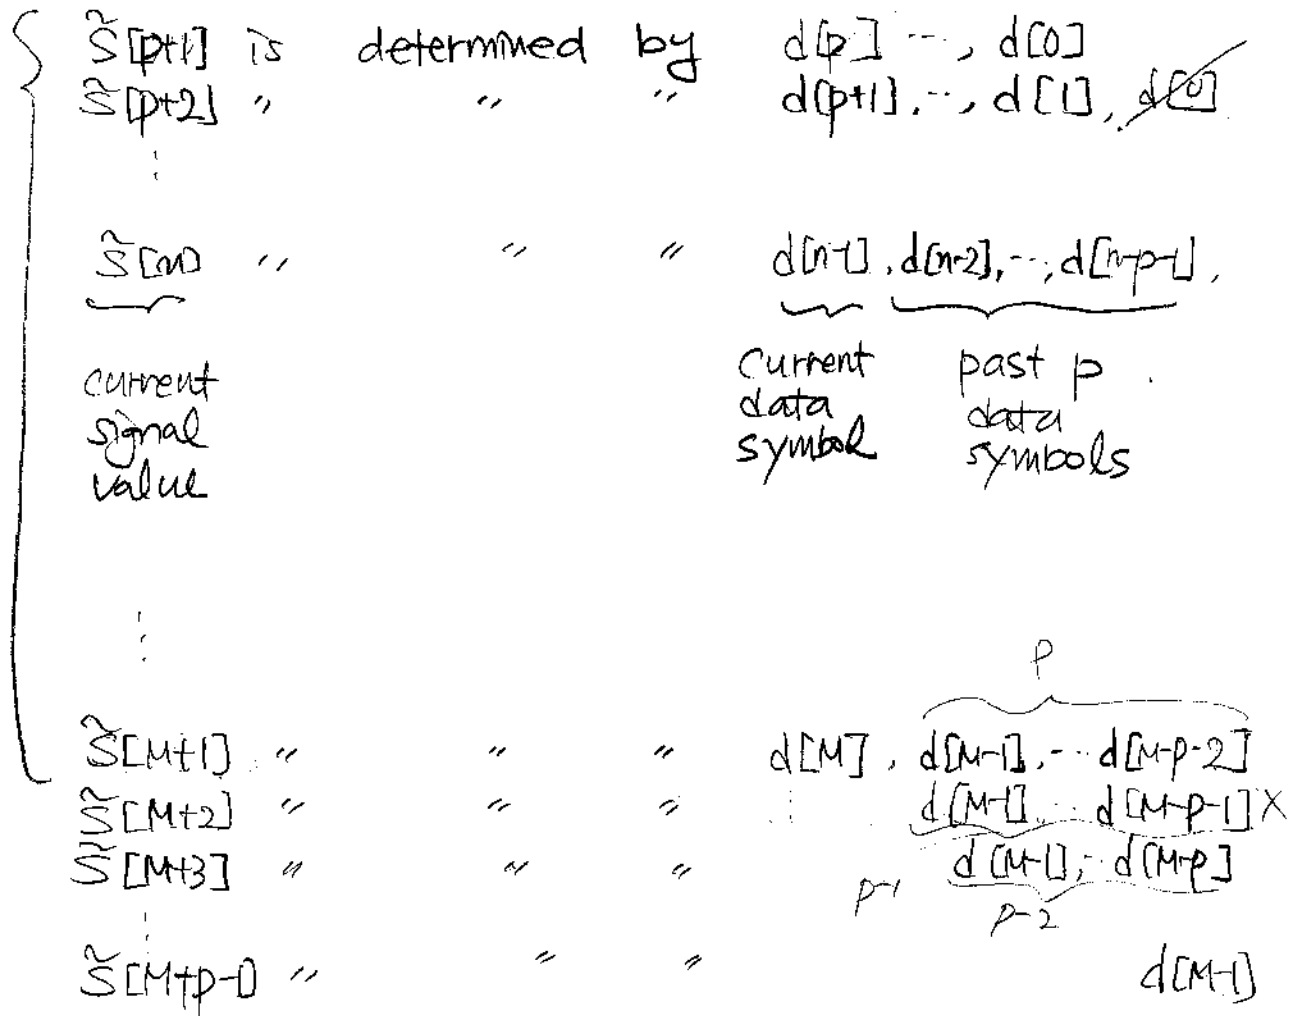 s̃[p+1] is determined by d[p] ..., d[0]
s̃[p+2] " " " d[p+1], ..., d[1], d[0]
⋮
s̃[n] " " " d[n-1], d[n-2], ..., d[n-p-1],
current signal value
current data symbol
past p data symbols
⋮
p
s̃[M+1] " " " d[M], d[M-1], ... d[M-p-2]
s̃[M+2] " " " ⋮ d[M-1], ... d[M-p-1] ×
s̃[M+3] " " " p-1 d[M-1], ... d[M-p]
p-2
⋮
s̃[M+p-1] " " " d[M-1]